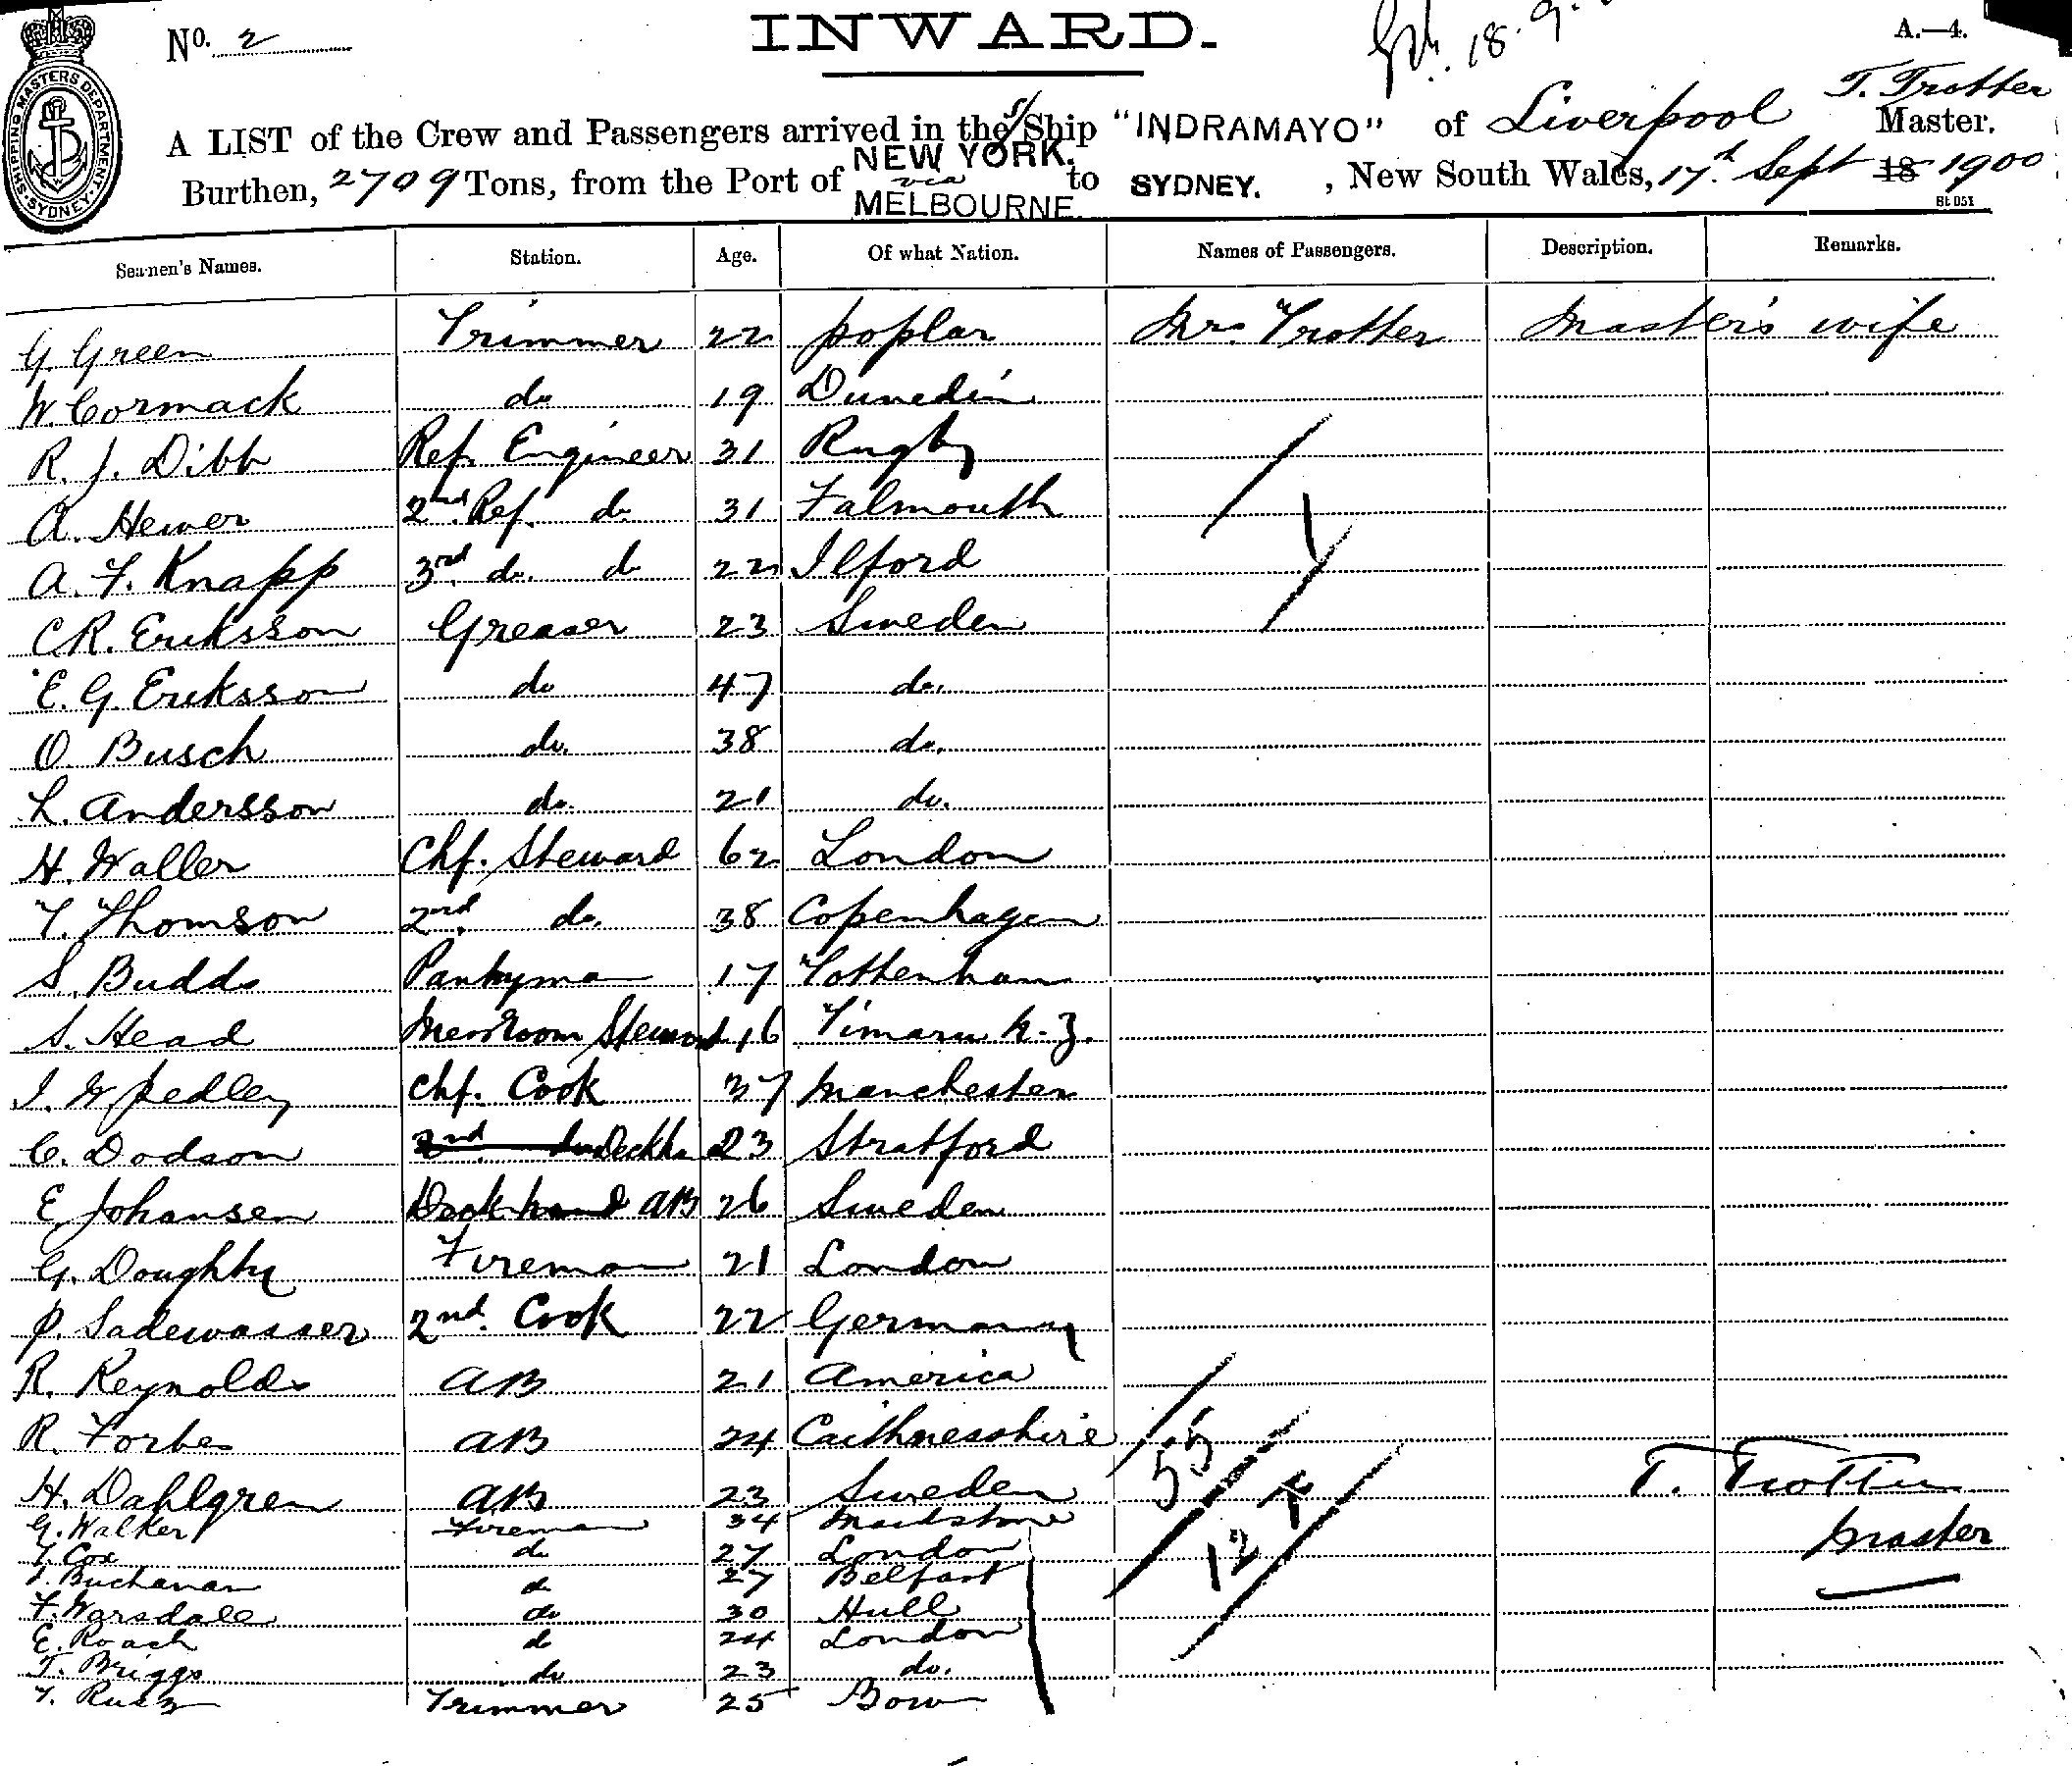 INWARD.
No. 2
18.9.
A.—4.
SHIPPING MASTERS DEPARTMENT. SYDNEY.
T. Trotter
A LIST of the Crew and Passengers arrived in the s/ Ship "INDRAMAYO" of Liverpool Master.
Burthen, 2709 Tons, from the Port of NEW YORK. via MELBOURNE. to SYDNEY. , New South Wales, 17th Sept 18 1900
Seamen's Names. Station. Age. Of what Nation. Names of Passengers. Description. Remarks.
G. Green Trimmer 22 poplar Mrs. Trotter Master's wife
W. Cormack do 19 Dunedin
R. J. Dibb Ref. Engineer 31 Rugby
A. Hewer 2nd Ref. do 31 Falmouth
A. F. Knapp 3rd do. do 22 Ilford
C R. Eriksson Greaser 23 Sweden
E. G. Eriksson do 47 do.
O Busch do. 38 do.
L. Andersson do. 21 do.
H. Waller Chf. Steward 62 London
T. Thomson 2nd do. 38 Copenhagen
S. Budds Pantryman 17 Tottenham
S. Head Messroom Steward 16 Timaru N. Z.
J. W. Pedley Chf. Cook 37 Manchester
C. Dodson 2nd do Deckha 23 Stratford
E. Johansen Deckhand AB 26 Sweden
G. Doughty Fireman 21 London
P. Sadewasser 2nd. Cook 22 Germany
R. Reynolds AB 21 America
R. Forbes AB 24 Caithnesshire
55
H. Dahlgren AB 23 Sweden T. Trotter
G. Walker Fireman 34 Maidstone Master
T. Cox do 27 London 12
Buchanan do 27 Belfast
F. Warsdale do 30 Hull
E. Roach do 24 London
T. Briggs do 23 do.
Trimmer 25 Bow